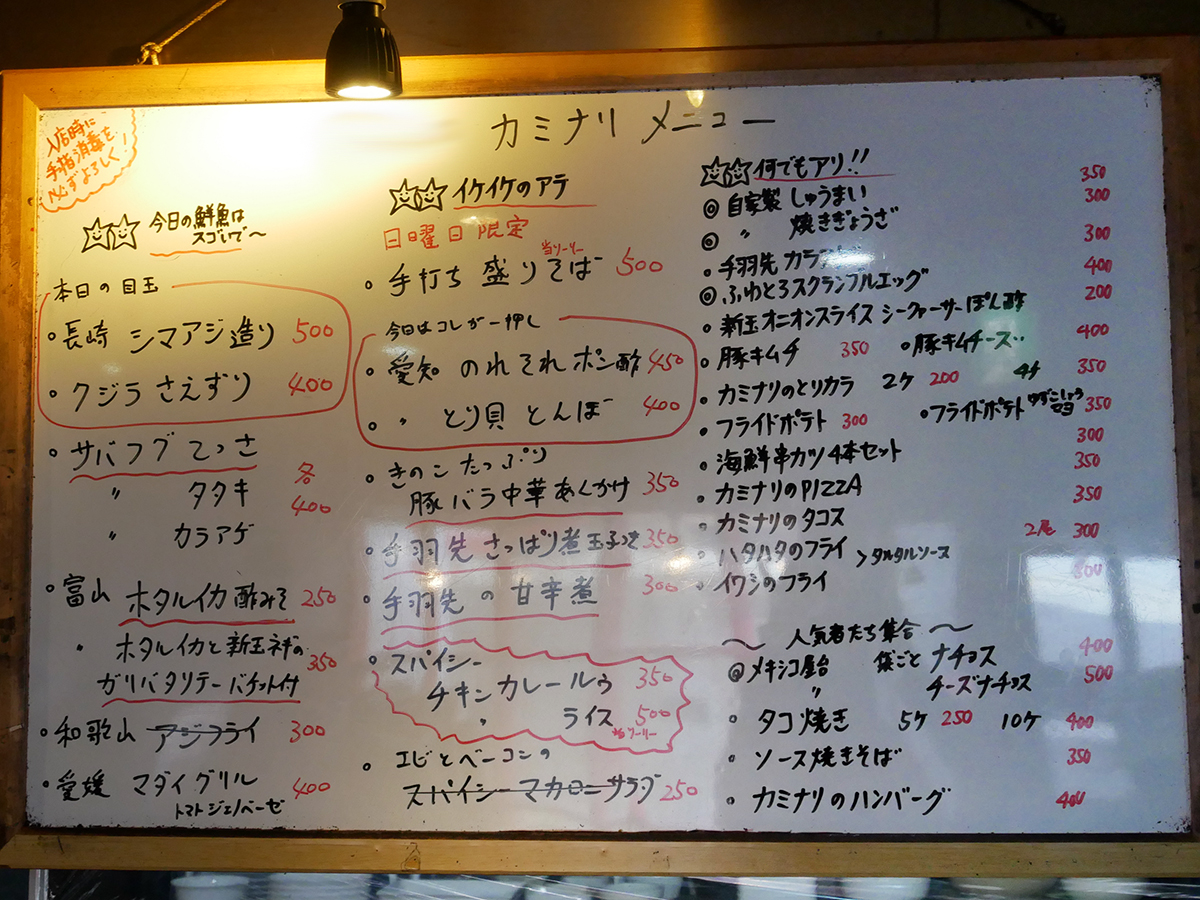 カミナリ メニュー
入店時に
手指消毒を
必ずよろしく!
今日の鮮魚は
スゴいで〜
本日の目玉
・長崎 シマアジ造り 500
・クジラ さえずり 400
・サバフグ てっさ
〃 タタキ 各
400
〃 カラアゲ
・富山 ホタルイカ酢みそ 250
〃 ホタルイカと新玉ネギの
ガリバタソテーバゲット付 350
・和歌山 アジフライ 300
・愛媛 マダイグリル 400
トマトジェノベーゼ
イケイケのアテ
日曜日限定
・手打ち 盛りそば 500
当ソーリー
今日はコレが一押し
・愛知 のれそれ ポン酢 450
・〃 とり貝 とんぼ 400
・きのこ たっぷり
豚バラ中華あんかけ 350
・手羽先 さっぱり煮玉子つき 350
・手羽先 の 甘辛煮 300
・スパイシー
チキンカレー ルゥ 350
〃 ライス 500
・エビとベーコンの
スパイシーマカロニサラダ 250
何でもアリ!! 350
◎自家製 しゅうまい 300
◎ 〃 焼きぎょうざ
・手羽先 カラアゲ 300
◎ふわとろスクランブルエッグ 400
・新玉オニオンスライス シークァーサーぽん酢 200
・豚キムチ 350 ・豚キムチーズ‥ 400
・カミナリのとりカラ 2ケ 200 4ケ 350
・フライドポテト 300 ・フライドポテト ゆずこしょうマヨ 350
・海鮮串カツ4本セット 300
・カミナリのPIZZA 350
・カミナリのタコス 350
・ハタハタのフライ 2尾 300
>タルタルソース
・イワシのフライ 300
〜人気者たち集合〜
@メキシコ屋台 袋ごと ナチョス 400
〃 チーズナチョス 500
・タコ焼き 5ケ 250 10ケ 400
・ソース焼きそば 350
・カミナリのハンバーグ 400